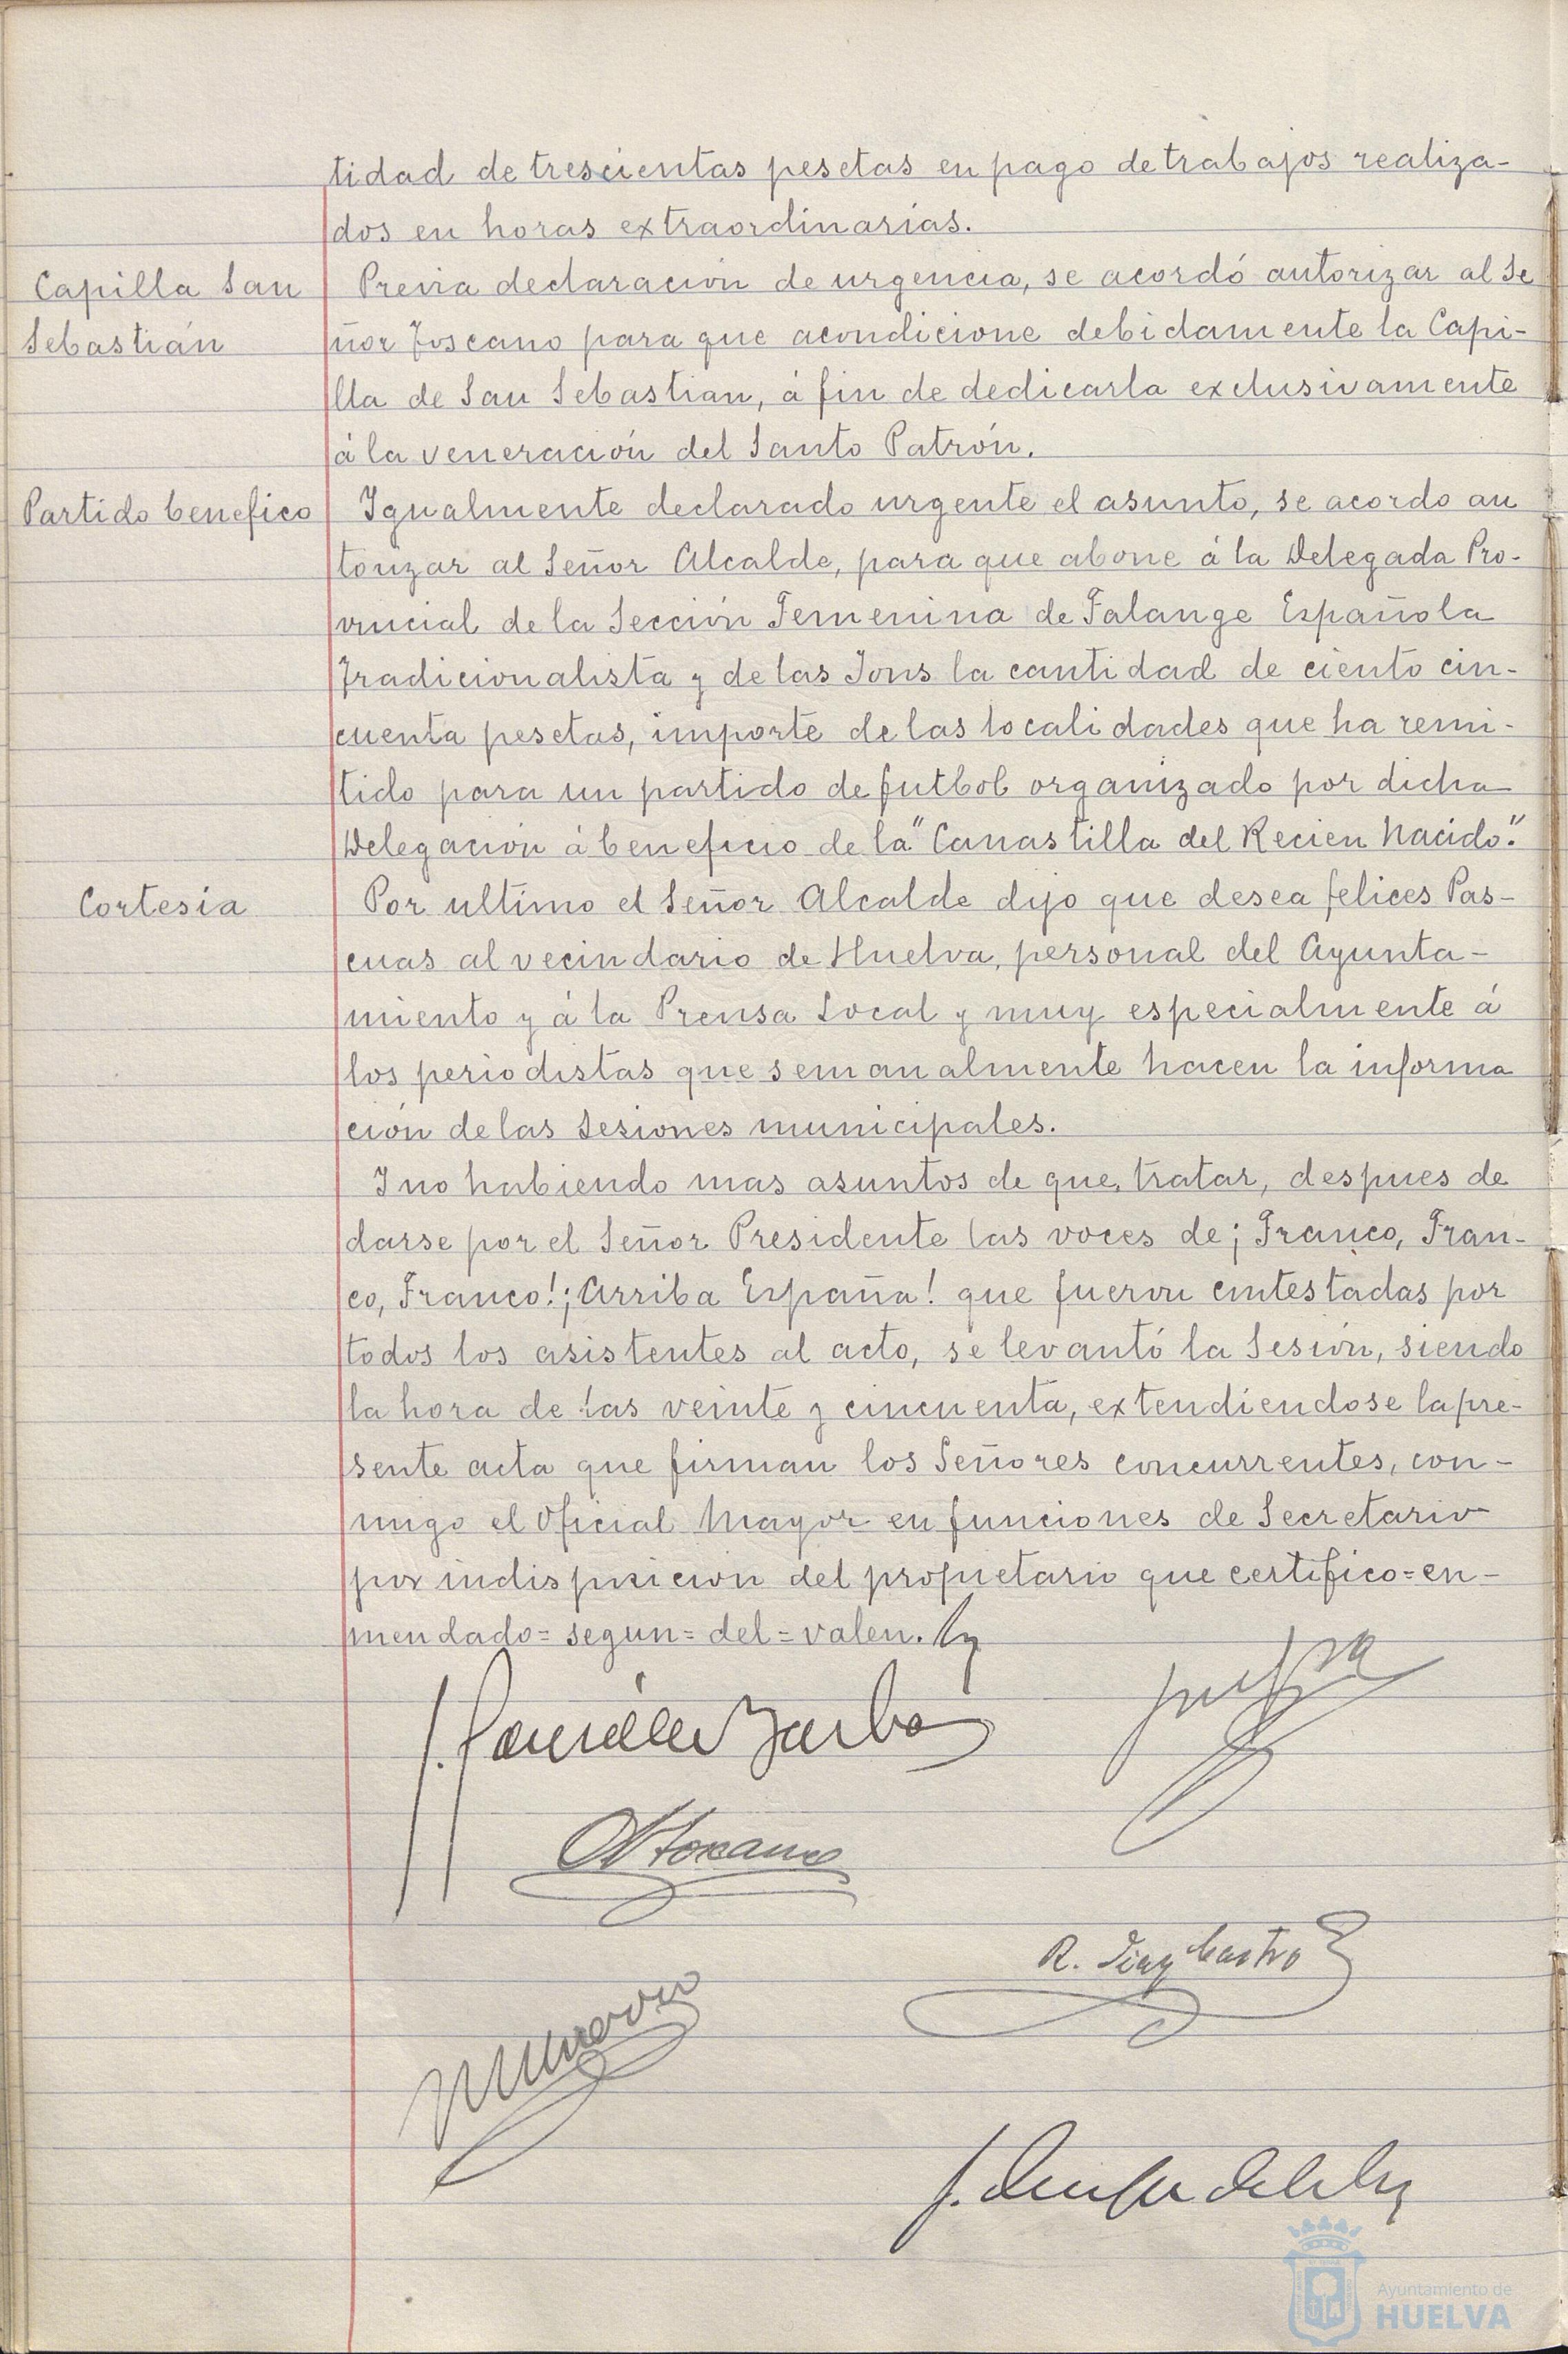 tidad de trescientas pesetas en pago de trabajos realiza-
dos en horas extraordinarias.
Capilla San
Sebastián
Previa declaración de urgencia, se acordó autorizar al Se
ñor Toscano para que acondicione debidamente la Capi-
lla de San Sebastian, á fin de dedicarla exclusivamente
á la veneración del Santo Patrón.
Partido benefico
Igualmente declarado urgente el asunto, se acordo au
torizar al Señor Alcalde, para que abone á la Delegada Pro-
vincial de la Sección Femenina de Falange Española
Tradicionalista y de las Jons la cantidad de ciento cin-
cuenta pesetas, importe de las localidades que ha remi-
tido para un partido de futbol organizado por dicha
Delegación á beneficio de la "Canastilla del Recien Nacido".
Cortesia
Por ultimo el Señor Alcalde dijo que desea felices Pas-
cuas al vecindario de Huelva, personal del Ayunta-
miento y á la Prensa Local y muy especialmente á
los periodistas que semanalmente hacen la informa
ción de las Sesiones municipales.
Y no habiendo mas asuntos de que tratar, despues de
darse por el Señor Presidente las voces de ¡Franco, Fran-
co, Franco! ¡Arriba España! que fueron contestadas por
todos los asistentes al acto, se levantó la Sesión, siendo
la hora de las veinte y cincuenta, extendiendose la pre-
sente acta que firman los Señores concurrentes, con-
migo el Oficial Mayor en funciones de Secretario
por indisposición del propietario que certifico=en-
mendado= segun= del= valen.
R. Diaz Castro
Ayuntamiento de
HUELVA